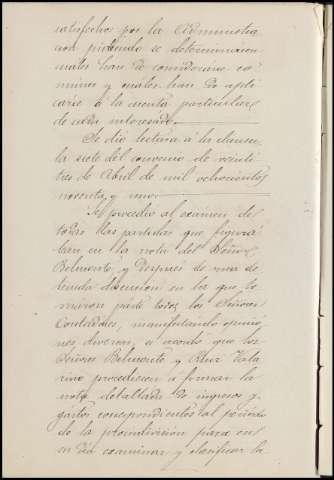 satisfecho por la Administra
cion pidiendo se determinaran
cuales han de considerarse co
munes y cuales han de apli
carse á la cuenta particular
de cada interesado.
Se dió lectura á la clausu
la siete del convenio de veinti
tres de Abril de mil ochocientos
noventa y uno.
Se procedió al exámen de
todas las partidas que figura
ban en la nota del Señor
Belmonte, y despues de una de
tenida discusion en la que to
maron parte todos los Señores
Contadores, manifestando opinio
nes diversas, se acordó que los
Señores Belmonte y Ruiz Vala
rino procediesen á formar la
nota detallada de ingresos y
gastos correspondientes al período
de la proindivision para en
su dia examinar y clasificar la